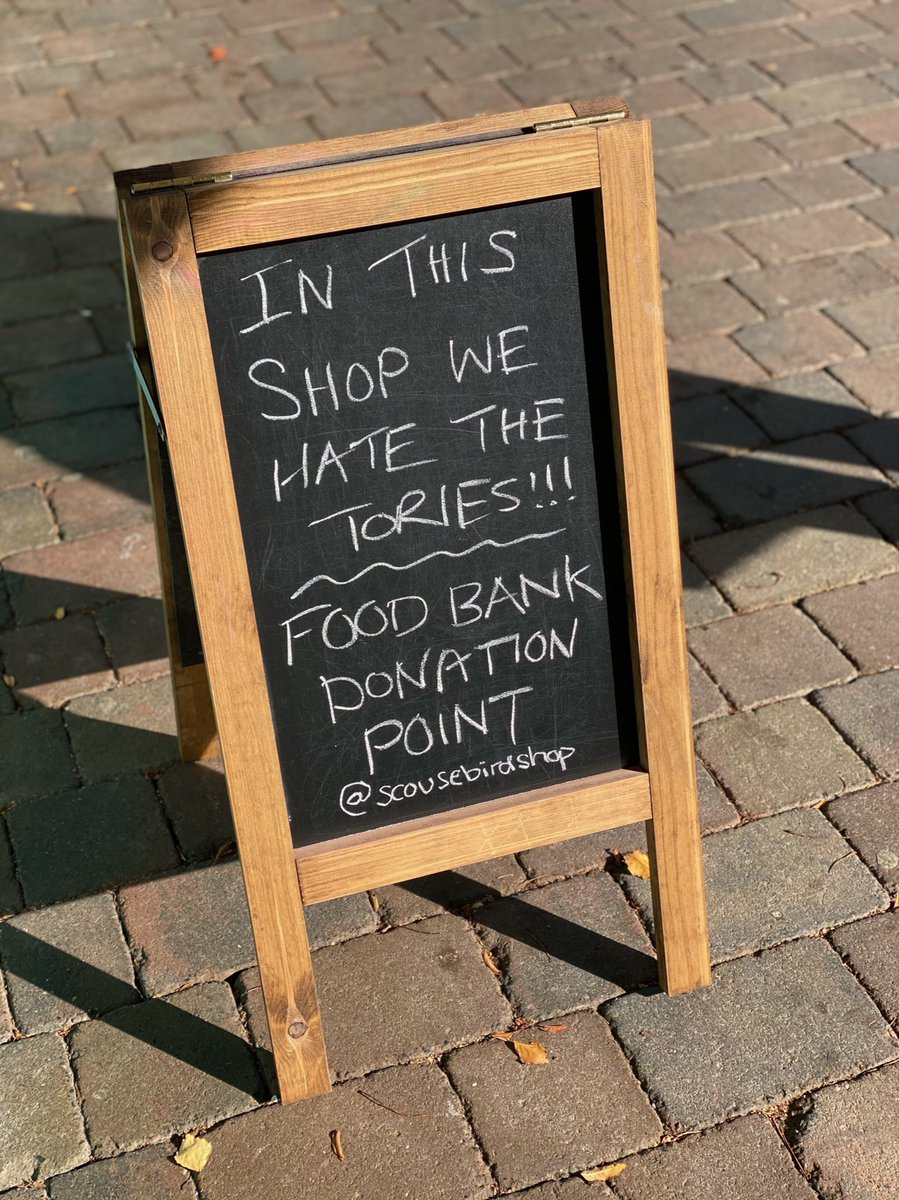 IN THIS
SHOP WE
HATE THE
TORIES!!!
FOOD BANK
DONATION
POINT
@scousebirdshop